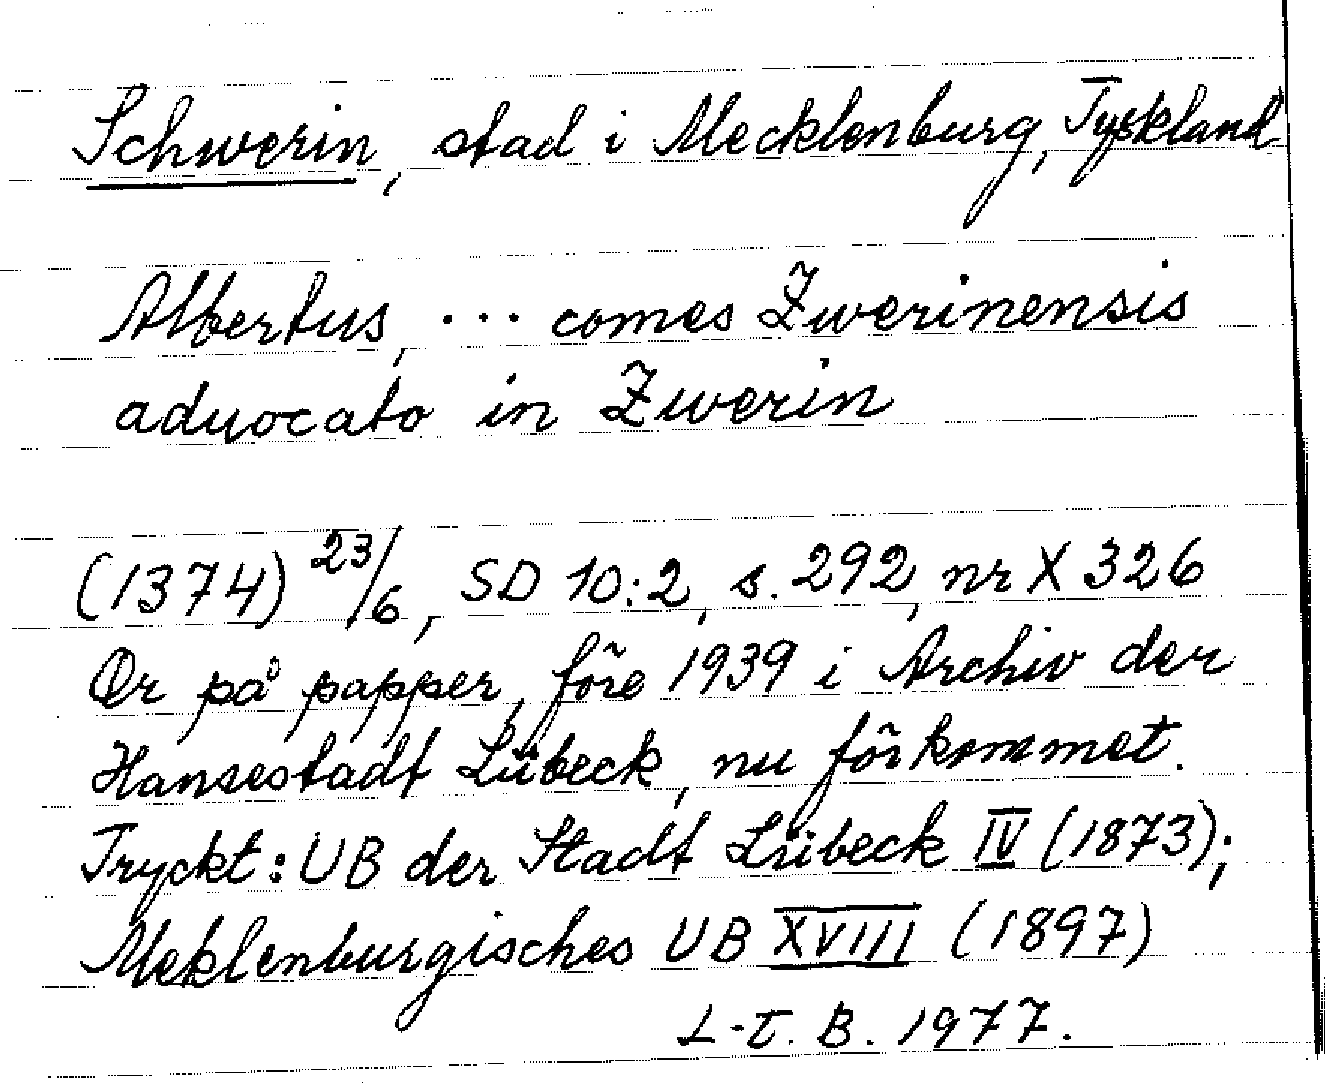 Schwerin, stad i Mecklenburg, Tyskland
Albertus, ... comes Zwerinensis
aduocato in Zwerin
(1374) 23/6, SD 10:2, s. 292, nr X 326
Or på papper, före 1939 i Archiv der
Hansestadt Lübeck, nu förkommet.
Tryckt: UB der Stadt Lübeck IV (1873);
Meklenburgisches UB XVIII (1897)
L-E. B. 1977.